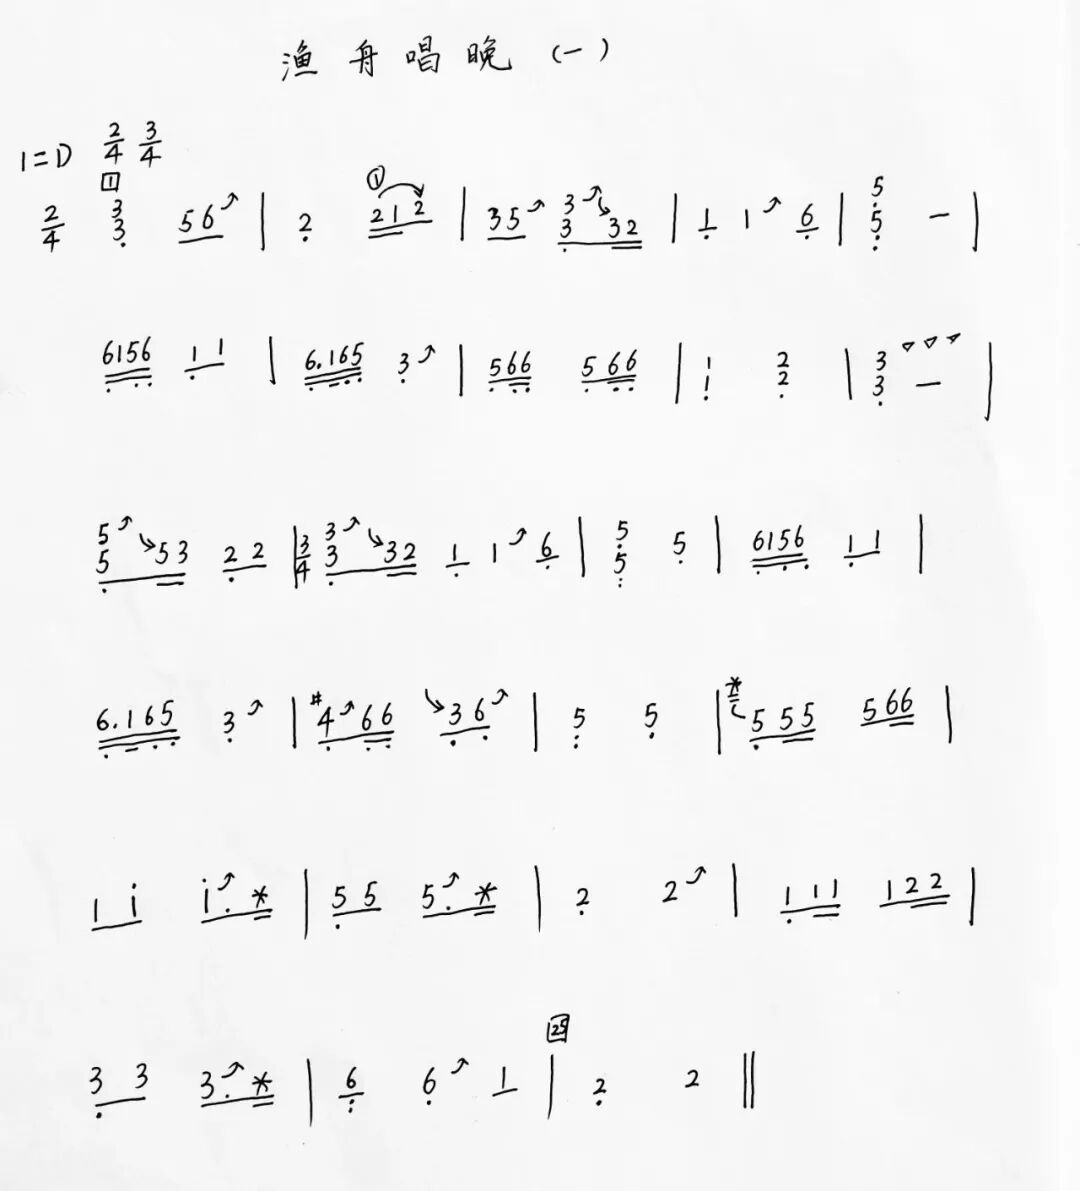 渔舟唱晚（一）
1=D 2/4 3/4
1
2/4 3 3 56 | 2 ① 212 | 35 3 3 32 | 1 1 6 | 5 5 — |
6156 11 | 6.165 3 | 566 566 | 1 1 2 2 | 3 3 — |
5 5 53 22 | 3/4 3 3 32 1 1 6 | 5 5 5 | 6156 11 |
6.165 3 | #4 66 36 | 5 5 | * 555 566 |
1 i i. * | 55 5. * | 2 2 | 111 122 |
33 3. * | 6 6 1 | 25 2 2 ‖